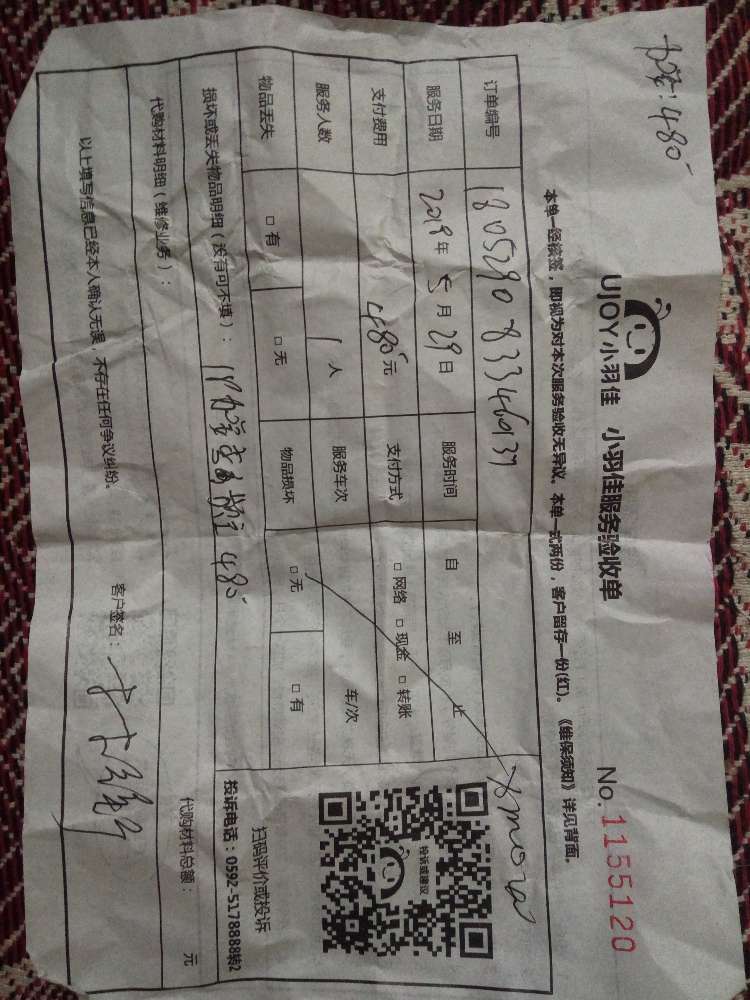 办签:480
UJOY小羽佳 小羽佳服务验收单 No.1155120
本单一经核签，即视为对本次服务验收无异议。本单一式两份，客户留存一份(红)。《维保须知》详见背面。
订单编号 180529083346137
服务日期 2018年5月29日 服务时间 自 至 止
支付费用 480元 支付方式 □网络 □现金 □转账
服务人数 1人 服务车次 车/次
物品丢失 □有 □无 物品损坏 □无 □有
损坏或丢失物品明细（没有可不填）： 480
代购材料明细（维修业务）： 代购材料总额： 元
以上填写信息已经本人确认无误，不存在任何争议纠纷。 客户签名：
投诉或建议
扫码评价或投诉
投诉电话：0592-5178888转2